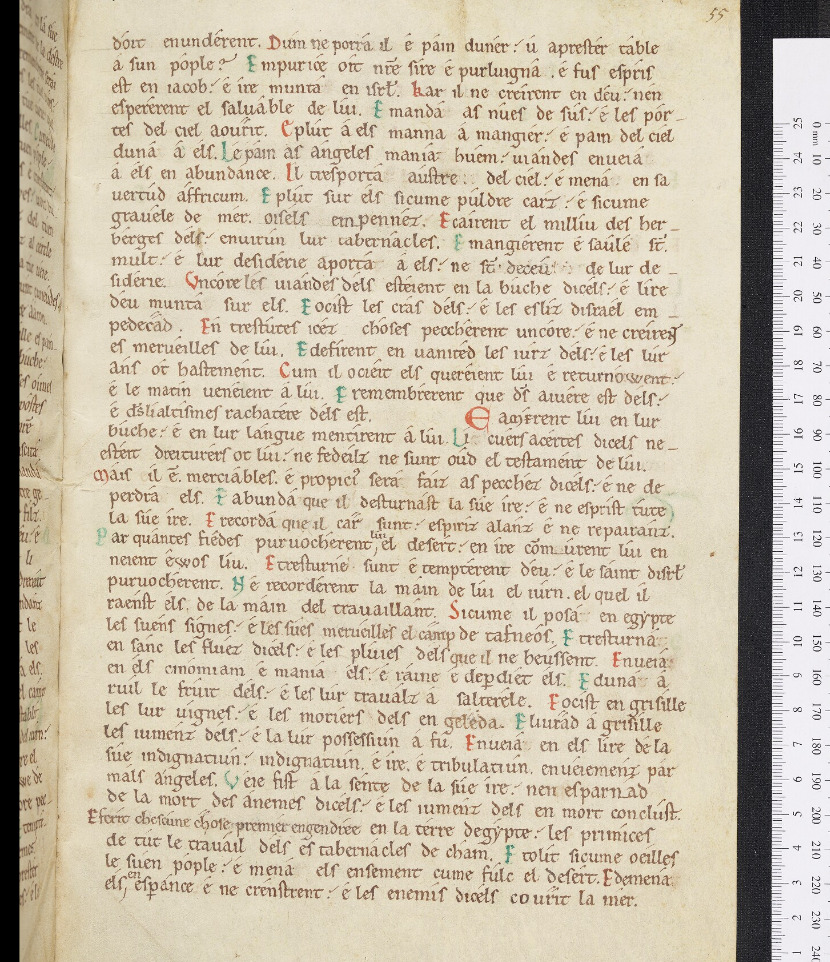 55
doit enunderent. Dum ne porra il é pain duner: u aprester table
a sun pople? E mpurice oit nre sire é purluigna . é fus espris
est en iacob: é ire munta en isrl. Kar il ne creirent en deu: nen
espererent el saluable de lui. E manda as nues de sus: é les por-
tes del ciel aourit. E plut á els manna á mangier: é pain del ciel
duna á els. Le pain as angeles mania huem: uiandes enueia
á els en abundance. Il tresporta austre: del ciel: é mena en sa
uertud affricum. E plut sur els sicume puldre carz: é sicume
grauele de mer. oisels empennez. E cairent el milliu des her-
berges dels: enuirun lur tabernacles. E mangierent é saulé st.
mult: é lur desiderie aporta á els: ne st deceu de lur de-
siderie. Uncore les uiandes dels esteient en la buche dicels: é lire
deu munta sur els. E ocist les cras dels: é les esliz disrael em-
pedecad. En trestutes icez choses peccherent uncore: é ne creirent
es merueilles de lui. E defirent en uanited les iurz dels: é les lur
ans ot hastement. Cum il ocieit els quereient lui é returnowent:
é le matin veneient á lui. E remembrerent que ds aiuere est dels:
é ds li altismes rachatere dels est. E amerent lui en lur
buche: é en lur langue mentirent á lui. Li cuers acertes dicels ne-
steit dreiturers ot lui: ne fedeilz ne sunt oud el testament de lui.
Mais il é. merciables. é propicius sera faiz as pecchez dicels: é ne de
perdra els. E abunda que il desturnast la sue ire: é ne esprist tute
la sue ire. E recorda que il car sunt: espiriz alanz é ne repairanz.
Par quantes fiedes puruocherent lui el desert: en ire commurent lui en
neient ewos liu. E tresturne sunt é tempterent deu: é le saint disrl
puruocherent. N é recorderent la main de lui el iurn. el quel il
raenst els, de la main del trauaillant. Sicume il posa en egypte
les suens signes: é les sues merueilles el camp de tafneos. E tresturna
en sanc les fluez dicels: é les pluies dels que il ne beussent. E nueia
en els cinomiam é mania els: é raine é deperdiet els. E duna á
ruil le fruit dels: é les lur trauailz á salterele. E ocist en grisille
les lur uignes: é les moriers dels en geleda. E liurad á grisille
les iumenz dels: é la lur possessiun á fu. E nueia en els lire de la
sue indignatiun: indignatiun. é ire. é tribulatiun. enueiemenz par
mals angeles. Veie fist á la sente de la sue ire: nen esparnad
de la mort des anemes dicels: é les iumenz dels en mort conclust.
E ferit chescune chose premier engendree en la terre degypte: les primices
de tut le trauail dels es tabernacles de cham. E tolit sicume oeilles
le suen pople: é mena els ensement cume fulc el desert. E demena
els, en esperance é ne crenstrent: é les enemis dicels courit la mer.